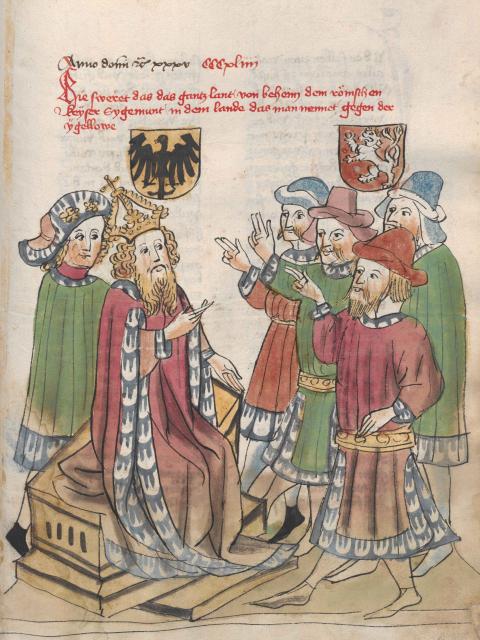 Anno dom
Hie sweret das das gantz lant von beheim dem römschen
keyser Sygemunt in dem lande das man nennet gegen der
ygellowe